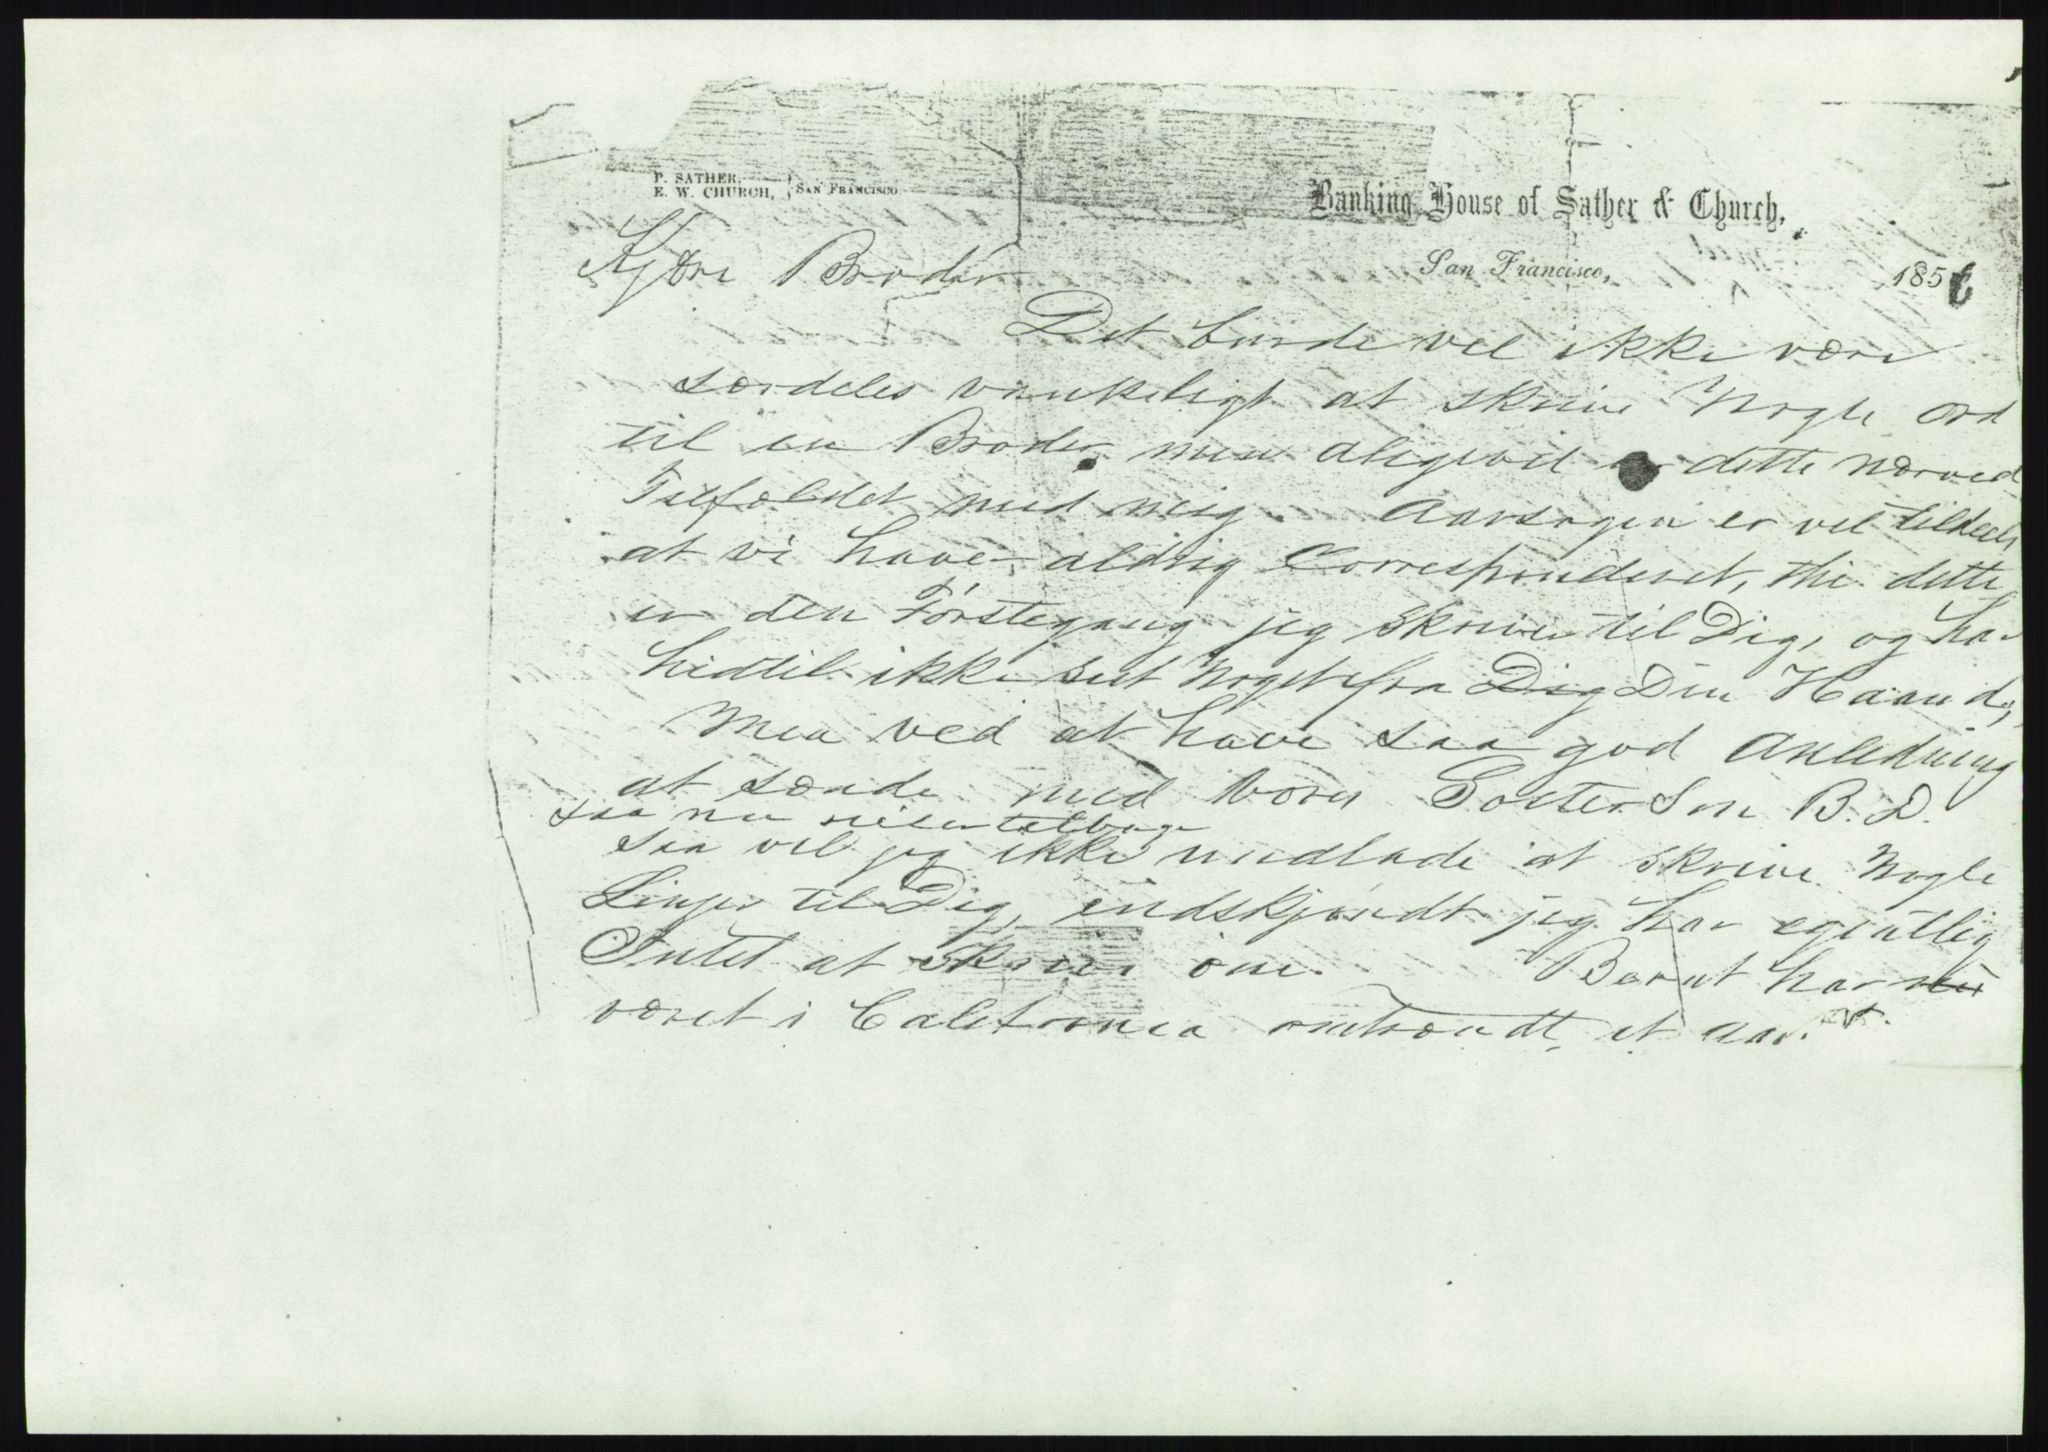 P. SATHER,
E. W. CHURCH, } SAN FRANCISCO
Banking House of Sather & Church,
San Francisco, 185
Kjære Broder
Det burde vel ikke være
særdeles vankeligt at skrive Nogle Ord
til en Broder, men aligevel er dette nærved
Tilfældet med mig. Aarsagen er vel tildeels
at vi have aldrig Correspunderet, thi dette
er den Førstegang jeg skriver til Dig, og har
hidtil ikke seet Noget fra Dig Din Haand,
Men ved at have saa god Anledning
at sænde med Vores Søster Søn B. D.
saa nu reiser tilbage
saa vil jeg ikke undlade at skrive Nogle
Linjer til Dig, endskjøndt jeg har egentlig
Intet at skrive om. Bernt har nu
været i California omtrendt et Aar.